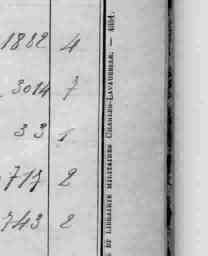 1882 4
3014 7
33 1
717 2
743 2
ET LIBRAIRIE MILITAIRES CHARLES-LAVAUZELLE. — 4891.